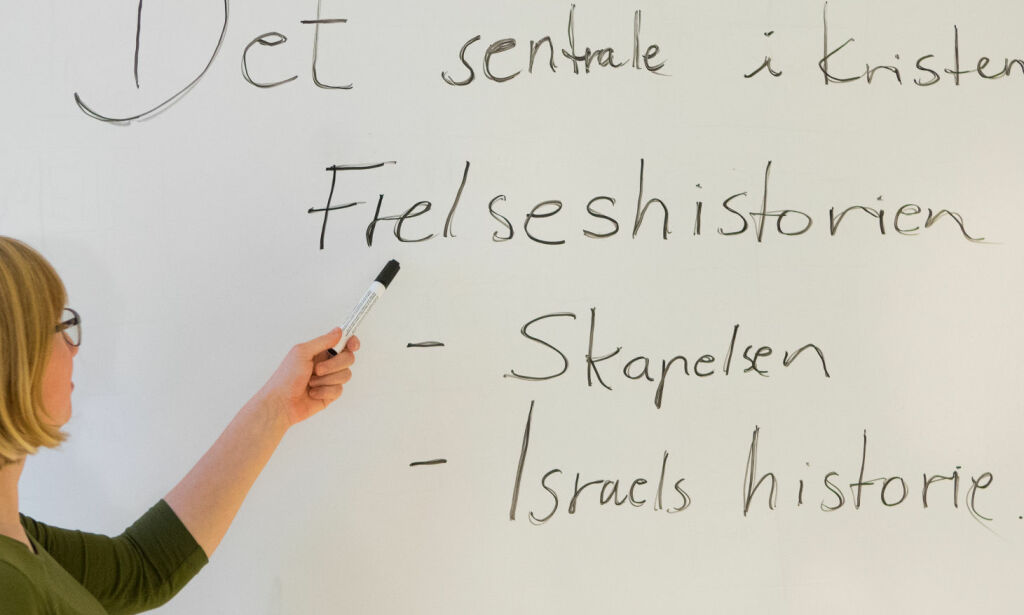 Det sentrale i kristen
Frelseshistorien
- Skapelsen
- Israels historie.